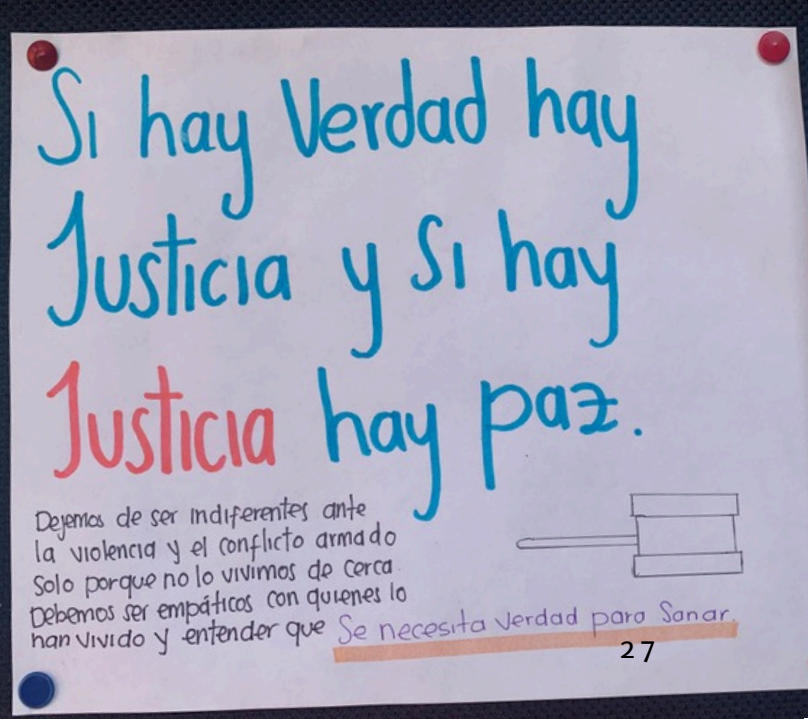 Si hay Verdad hay
Justicia y si hay
Justicia hay paz.
Dejemos de ser indiferentes ante
la violencia y el conflicto armado
Solo porque no lo vivimos de cerca.
Debemos ser empáticos con quienes lo
han vivido y entender que Se necesita verdad para Sanar.
27